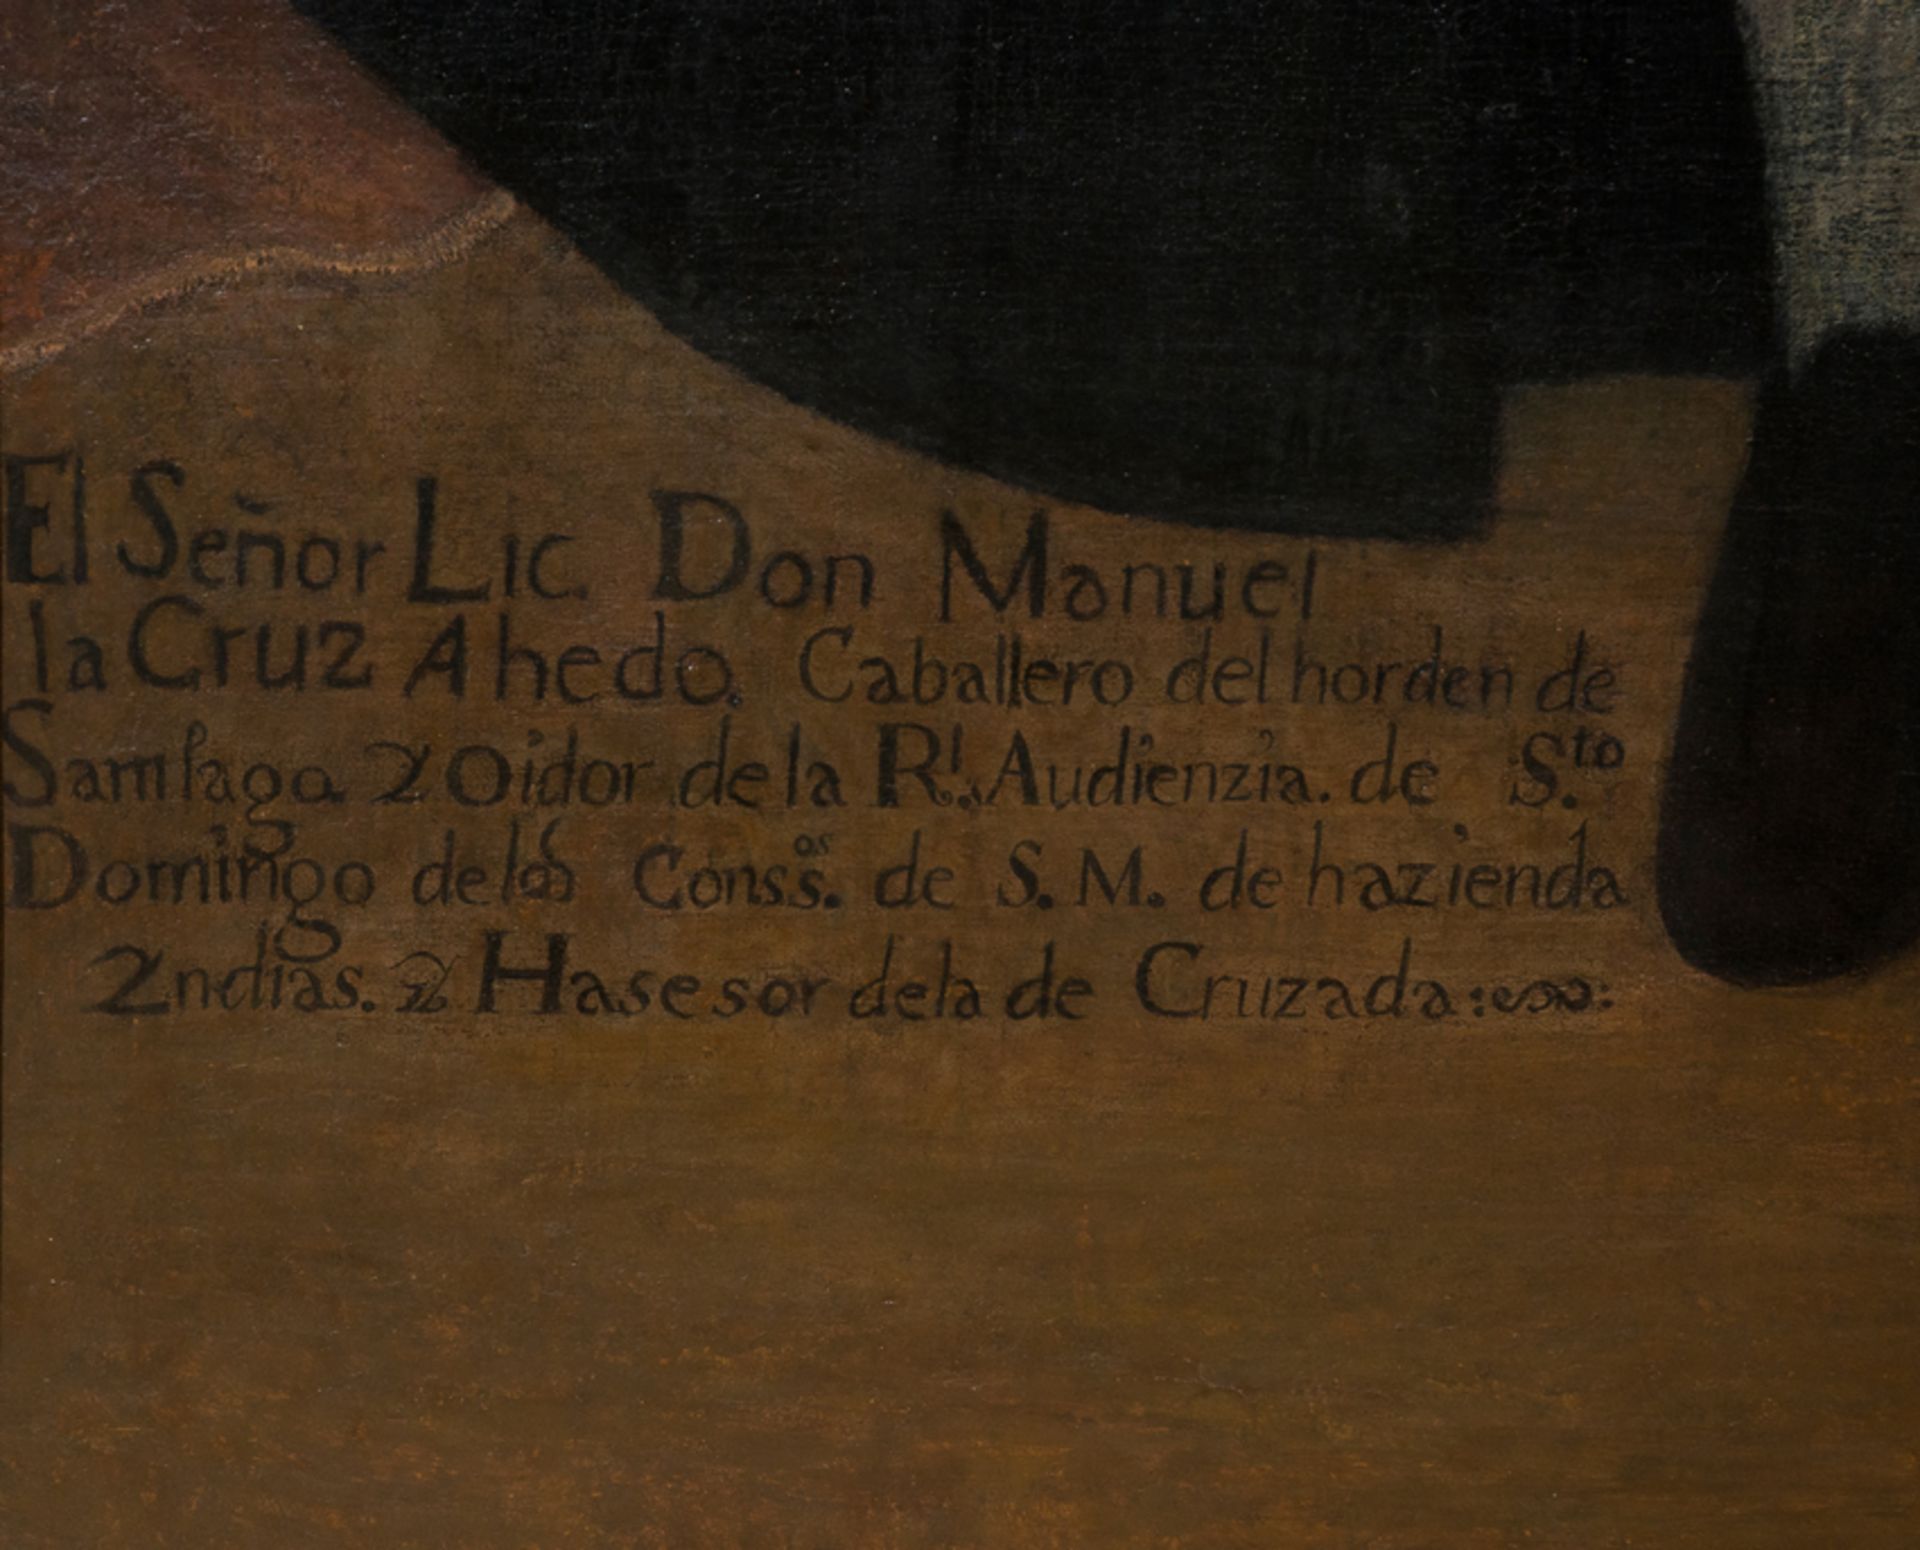 El Señor Lic. Don Manuel
la Cruz Ahedo. Caballero del horden de
Santiago. Y Oidor de la Rl. Audienzia. de Sto
Domingo delos Conss.os de S. M. de hazienda
Yndias. Y Hasesor dela de Cruzada: